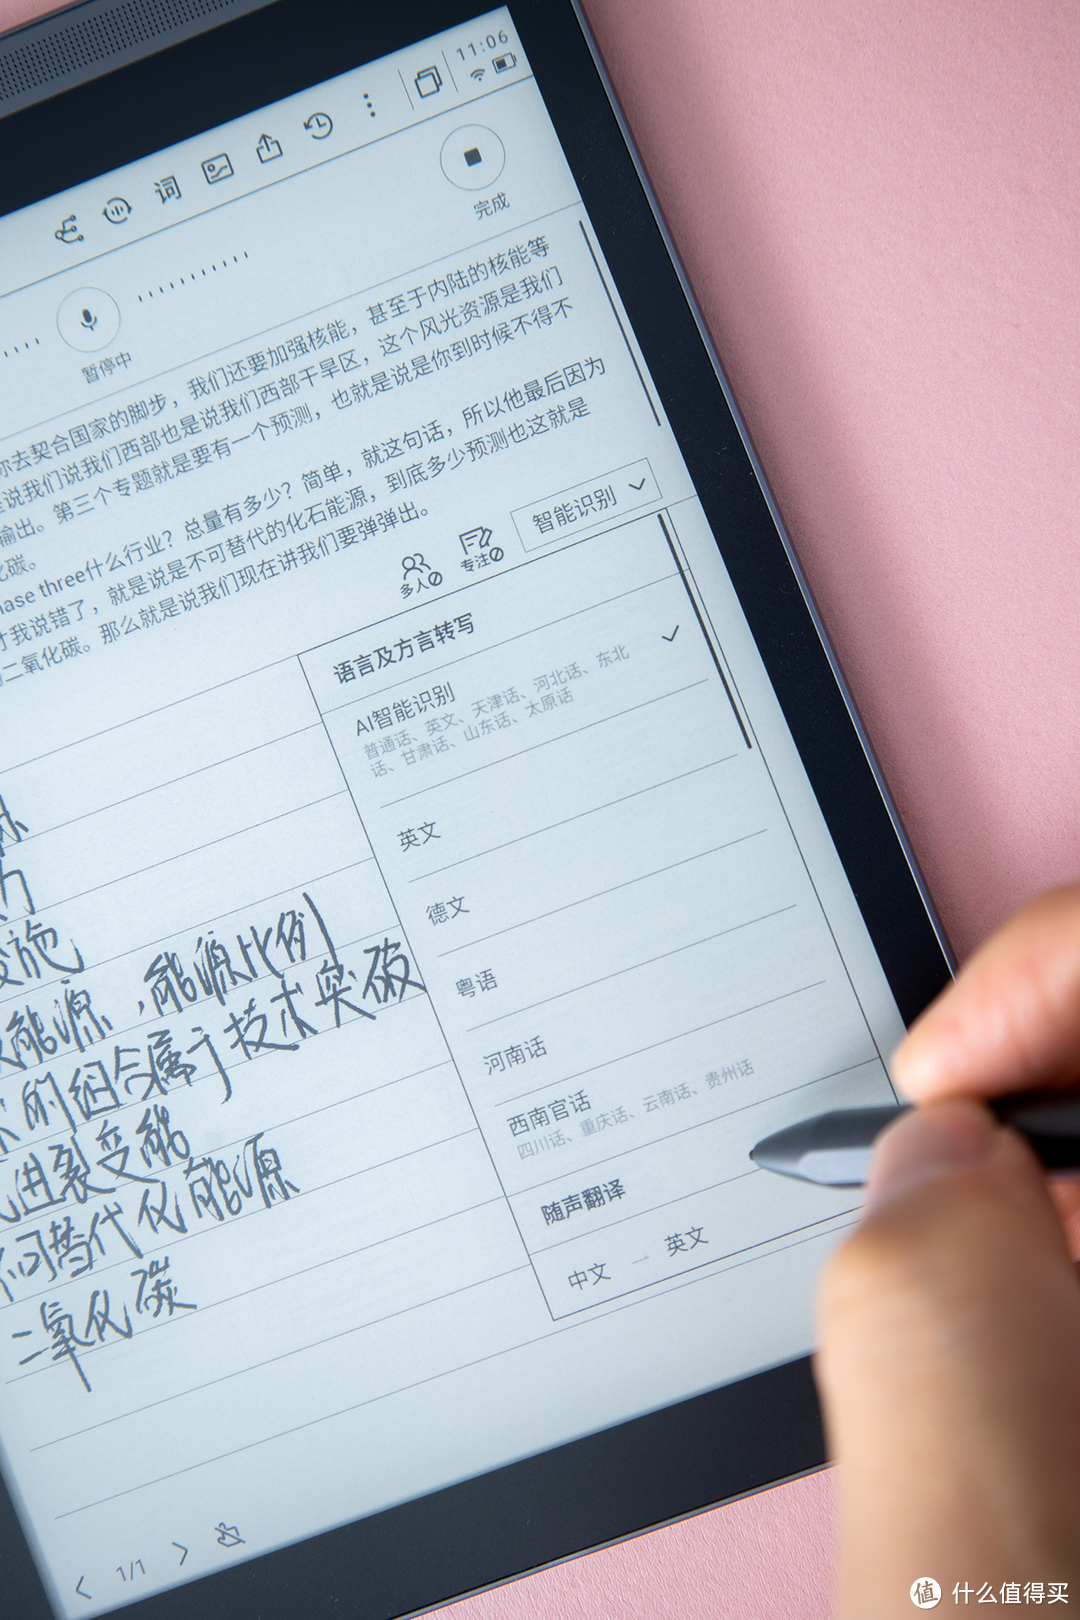 11:06
词
完成
暂停中
你去契合国家的脚步，我们还要加强核能，甚至于内陆的核能等
是说我们说我们西部也是说我们西部干旱区，这个风光资源是我们
输出。第三个专题就是要有一个预测，也就是说是你到时候不得不
化碳。
hase three什么行业？总量有多少？简单，就这句话，所以他最后因为
才我说错了，就是说是不可替代的化石能源，到底多少预测也这就是
二氧化碳。那么就是说我们现在讲我们要弹弹出。
多人
专注
智能识别
语言及方言转写
AI智能识别
普通话、英文、天津话、河北话、东北
话、甘肃话、山东话、太原话
英文
德文
粤语
河南话
西南官话
四川话、重庆话、云南话、贵州话
随声翻译
中文 — 英文
施
能源，能源比例
的组合属于技术突破
进裂变能
替代化能源
二氧化碳
1/1
值 什么值得买